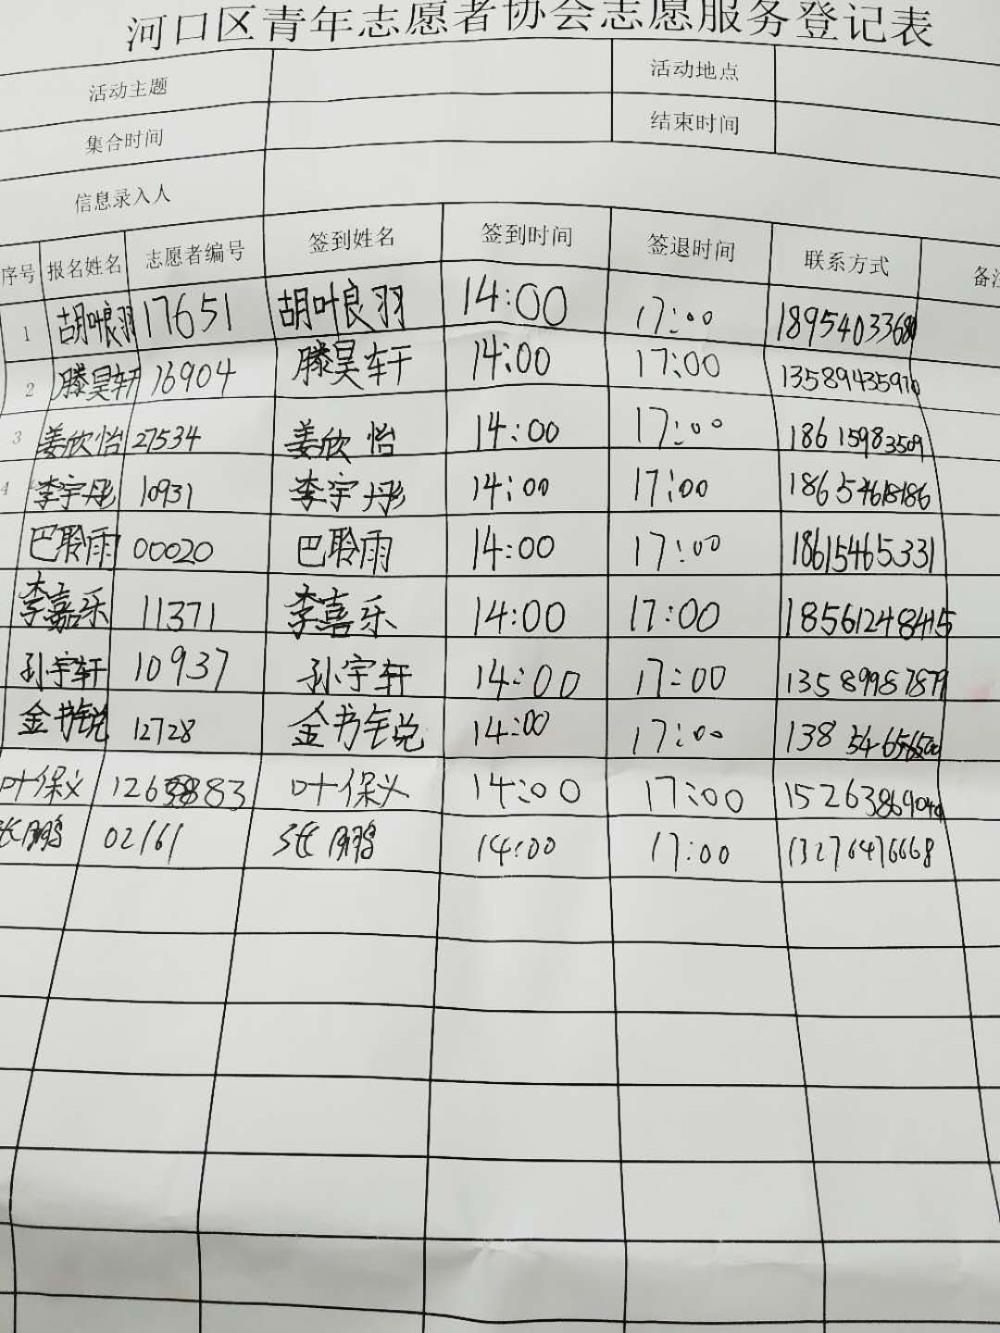 河口区青年志愿者协会志愿服务登记表
活动主题 活动地点
集合时间 结束时间
信息录入人
序号 报名姓名 志愿者编号 签到姓名 签到时间 签退时间 联系方式 备注
1 胡叶良羽 17651 胡叶良羽 14:00 17:00 18954033680
2 滕昊轩 16904 滕昊轩 14:00 17:00 13589435970
3 姜欣怡 27534 姜欣怡 14:00 17:00 18615983509
4 李宇彤 10931 李宇彤 14:00 17:00 18654618186
巴聆雨 00020 巴聆雨 14:00 17:00 18615465331
李嘉乐 11371 李嘉乐 14:00 17:00 18561248415
孙宇轩 10937 孙宇轩 14:00 17:00 13589987879
金书锐 12728 金书锐 14:00 17:00
叶保义 叶保义 14:00 17:00 15263869040
张鹏 02161 张鹏 14:00 17:00 13276476668